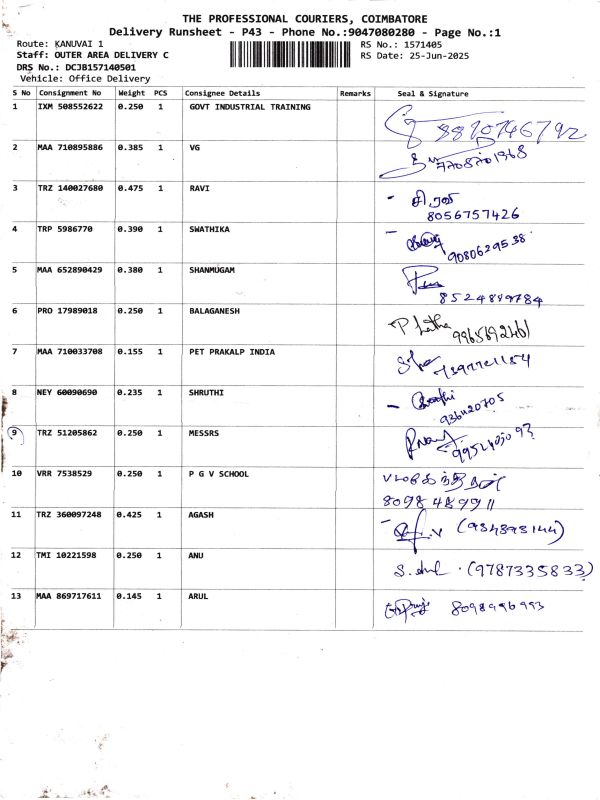 THE PROFESSIONAL COURIERS, COIMBATORE
Delivery Runsheet - P43 - Phone No.:9047080280 - Page No.:1
Route: KANUVAI 1
RS No.: 1571405
Staff: OUTER AREA DELIVERY C
RS Date: 25-Jun-2025
DRS No.: DCJB157140501
Vehicle: Office Delivery
S No Consignment No Weight PCS Consignee Details Remarks Seal & Signature
1 IXM 508552622 0.250 1 GOVT INDUSTRIAL TRAINING
2 MAA 710895886 0.385 1 VG 7708701368
3 TRZ 140027680 0.475 1 RAVI சி.ரவி
8056757426
4 TRP 5986770 0.390 1 SWATHIKA 9080629538
5 MAA 652890429 0.380 1 SHANMUGAM
8524849784
6 PRO 17989018 0.250 1 BALAGANESH P Latha
7 MAA 710033708 0.155 1 PET PRAKALP INDIA
8 NEY 60090690 0.235 1 SHRUTHI
9 TRZ 51205862 0.250 1 MESSRS
10 VRR 7538529 0.250 1 P G V SCHOOL
8098489911
11 TRZ 360097248 0.425 1 AGASH (934893144)
12 TMI 10221598 0.250 1 ANU (9787335833)
13 MAA 869717611 0.145 1 ARUL 8098996993